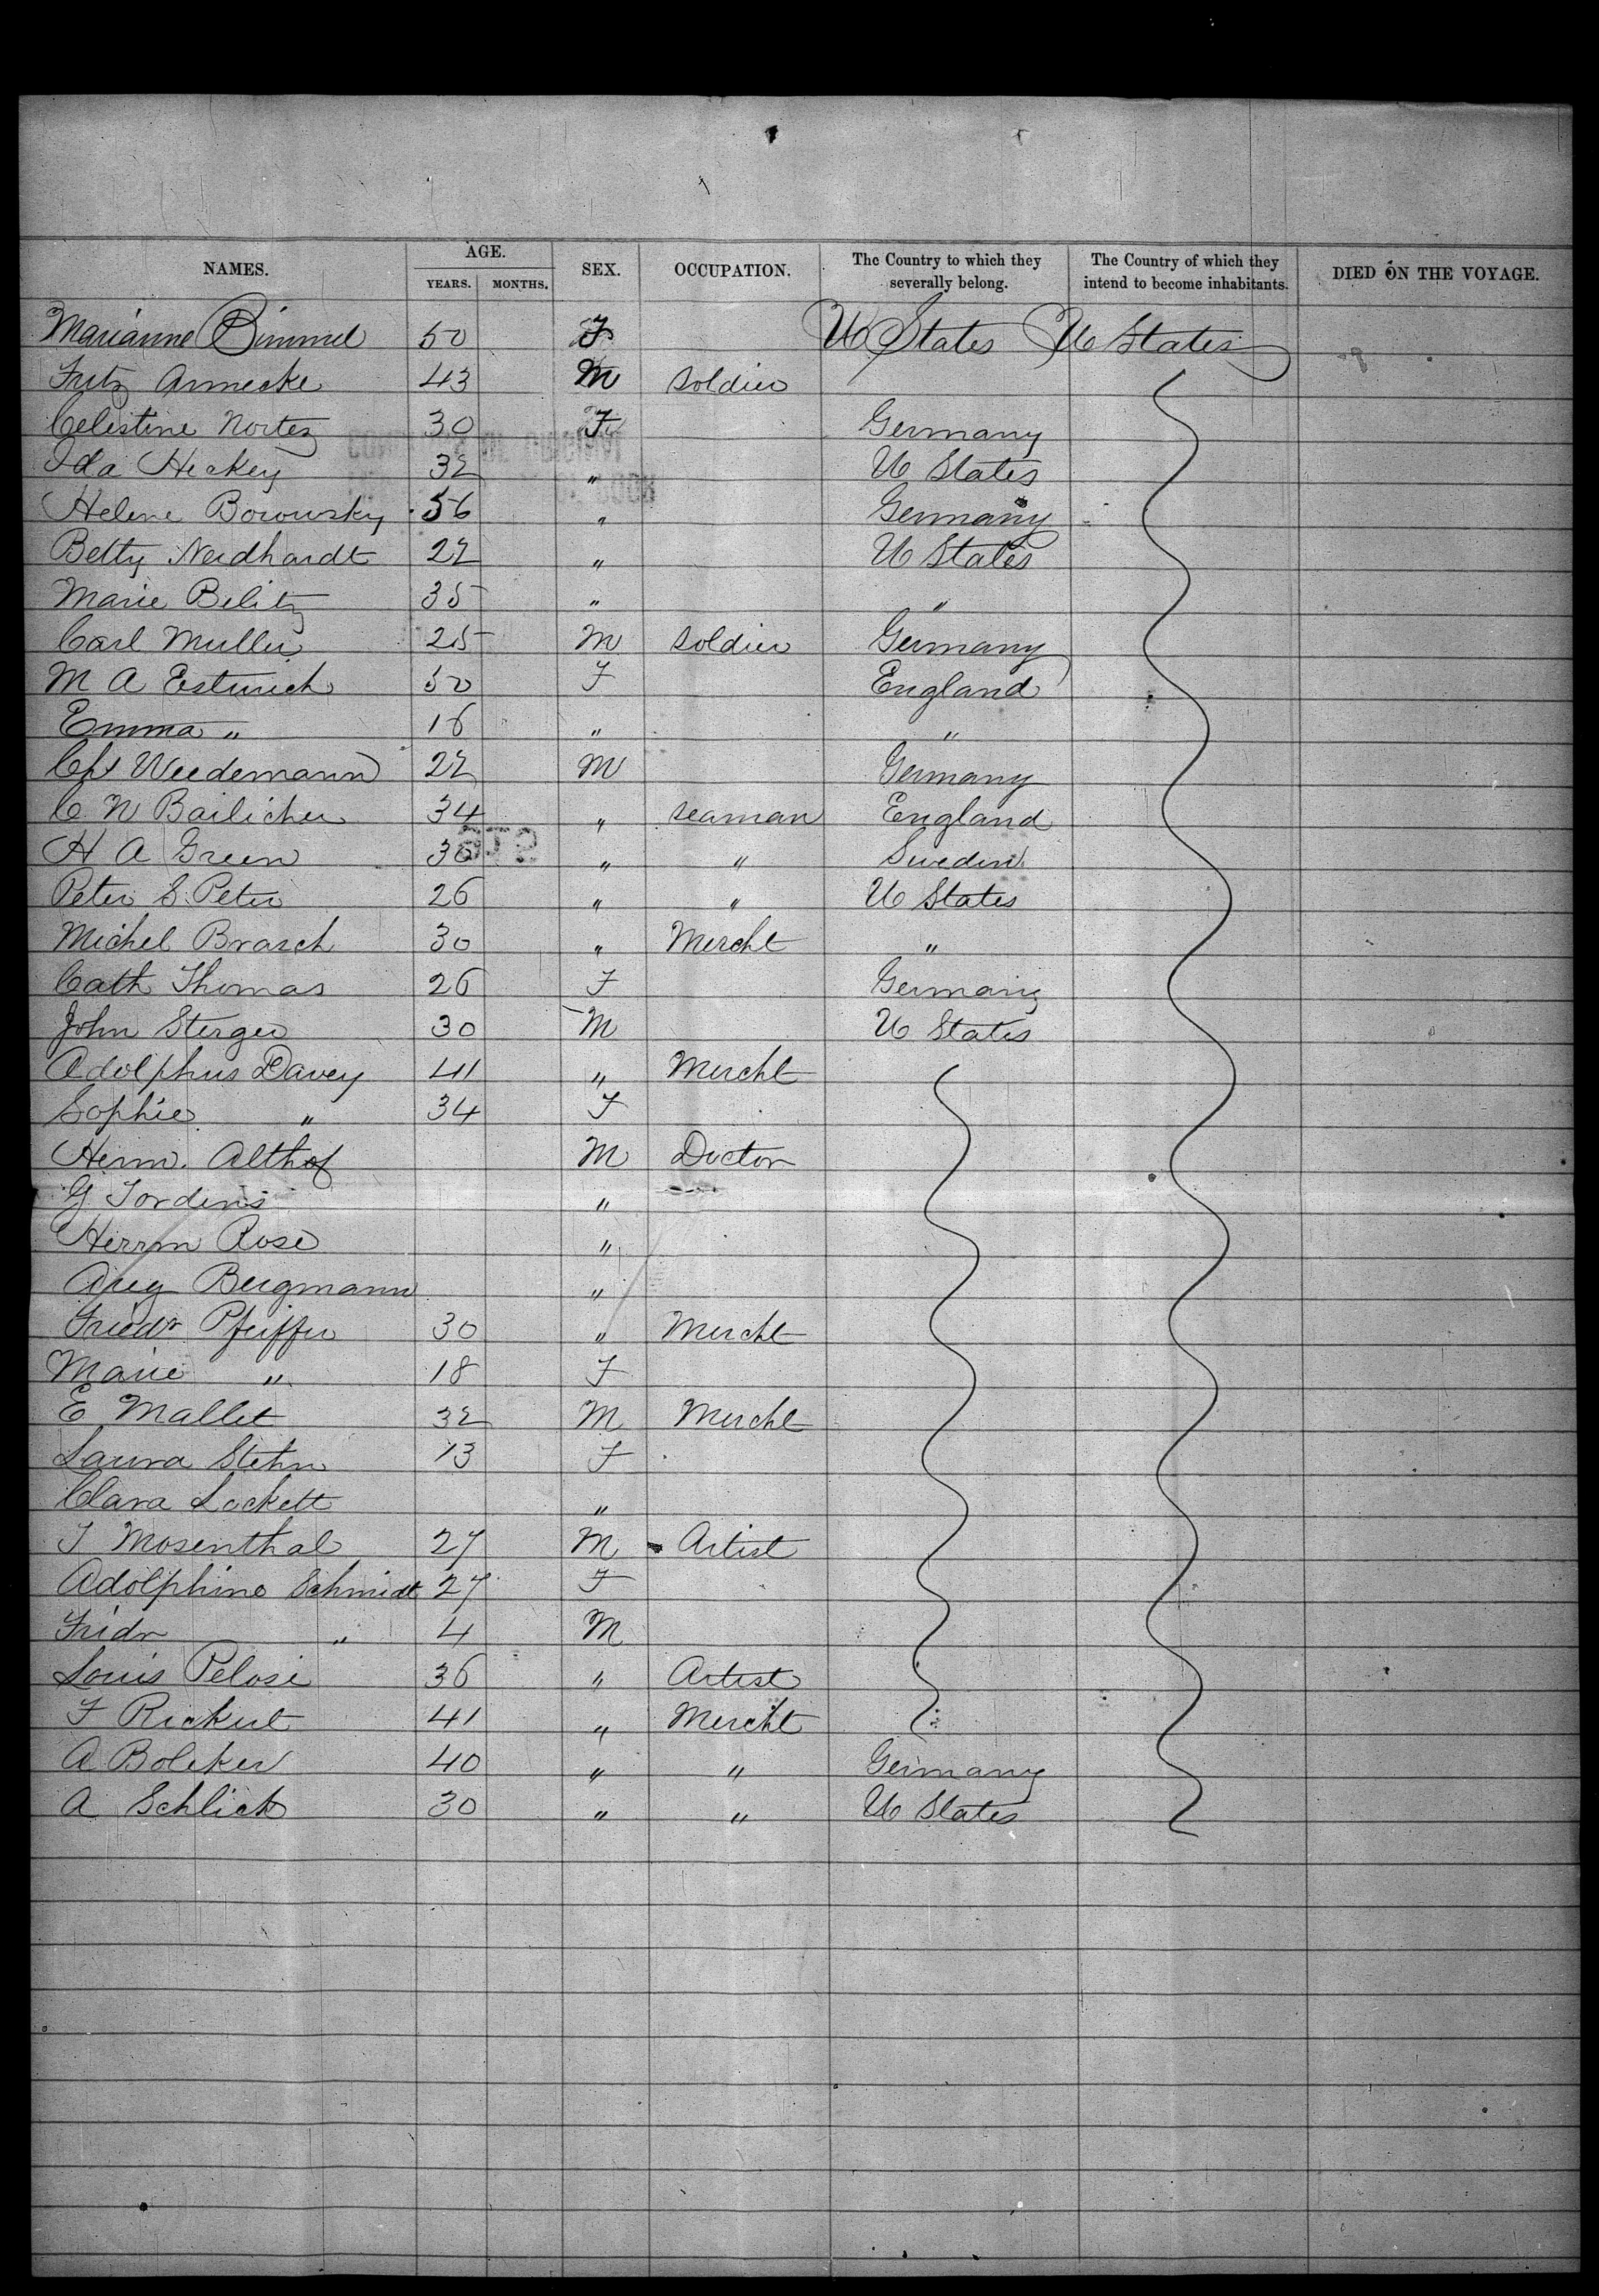 NAMES. AGE. YEARS. MONTHS. SEX. OCCUPATION. The Country to which they severally belong. The Country of which they intend to become inhabitants. DIED ON THE VOYAGE.
Marianne Bimmel 50 F U States U States
Fritz Armecke 43 M soldier
Celestine Nortez 30 F Germany
Ida Heckey 32 " U States
Helene Borowsky 56 " Germany
Betty Neidhardt 22 " U States
Marie Belitz 35 " "
Carl Muller 25 M soldier Germany
M A Esturich 50 F England
Emma " 16 " "
Chs Weedemann 22 M Germany
C. W Bailicher 34 " seaman England
H A Green 36 " " Sweden
Peter S. Peter 26 " " U States
Michel Brasch 30 " Mercht "
Cath Thomas 26 F Germany
John Sterger 30 M U States
Adolphus Davey 41 " Mercht
Sophie " 34 F
Herm. Althof M Doctor
G. Jordens "
Herrm Rose "
Aug Bergmann "
Friedr Pfeiffer 30 " Mercht
Marie " 18 F
E Mallet 32 M Mercht
Laura Stehn 13 F
Clara Lockett "
J Mosenthal 27 M Artist
Adolphine Schmidt 27 F
Fridr " 4 M
Louis Pelosi 36 " Artist
F Rickert 41 " Mercht
A Boleker 40 " " Germany
A Schlick 30 " " U States